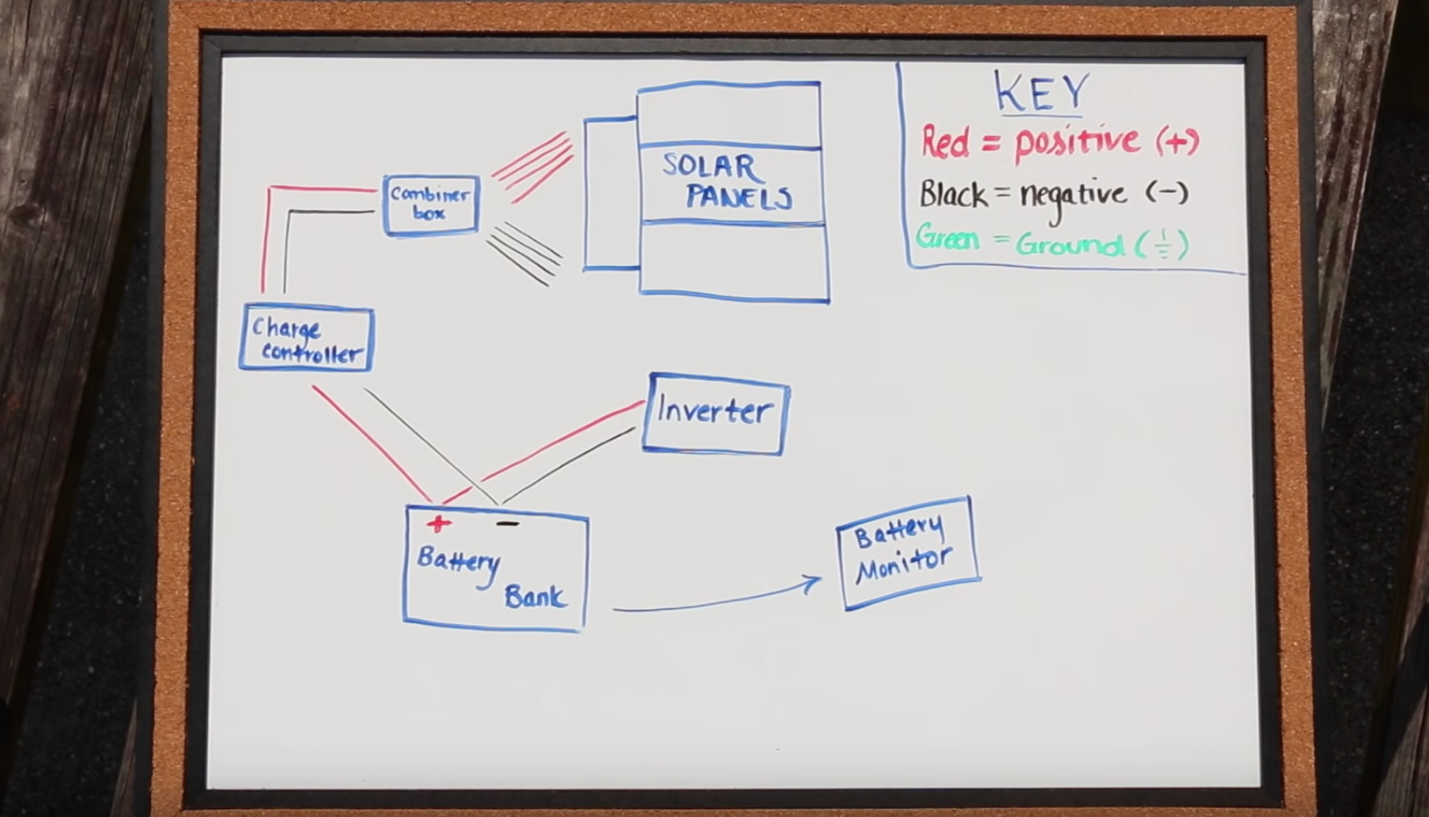 KEY
Red = positive (+)
Black = negative (-)
Green = Ground (⏚)
SOLAR
PANELS
Combiner
box
Charge
controller
Inverter
+ -
Battery
Bank
Battery
Monitor